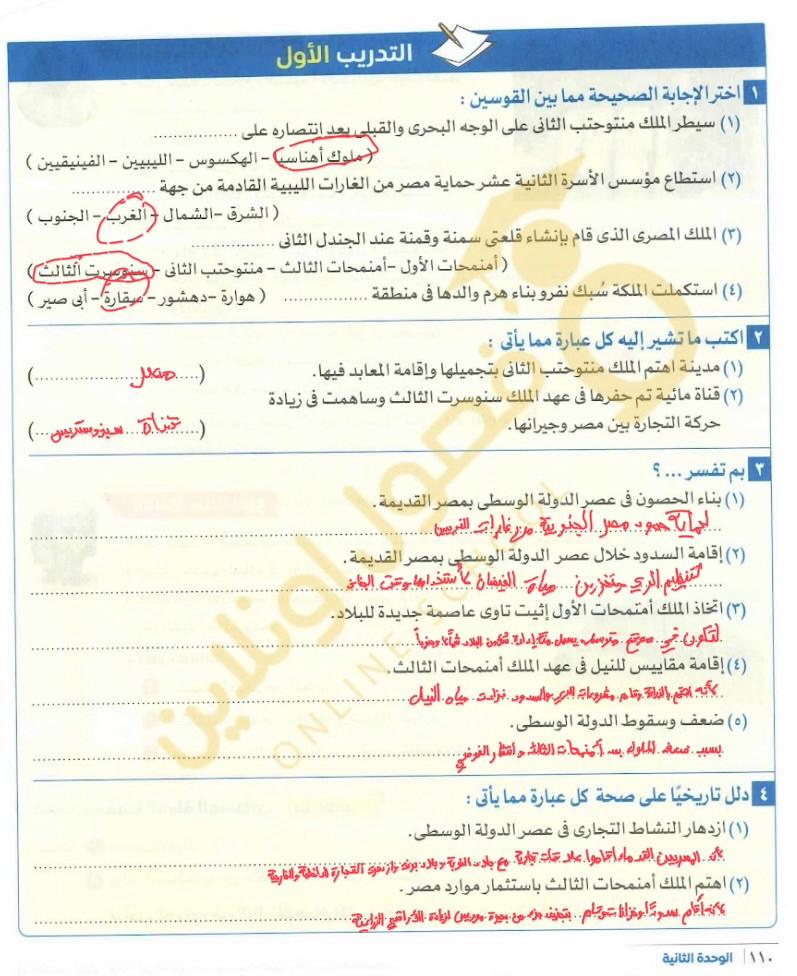 التدريب الأول
١ اختر الإجابة الصحيحة مما بين القوسين :
(١) سيطر الملك منتوحتب الثانى على الوجه البحرى والقبلى بعد انتصاره على ..................
( ملوك أهناسيا – الهكسوس – الليبيين – الفينيقيين )
(٢) استطاع مؤسس الأسرة الثانية عشر حماية مصر من الغارات الليبية القادمة من جهة ..................
( الشرق – الشمال – الغرب – الجنوب )
(٣) الملك المصرى الذى قام بإنشاء قلعتى سمنة وقمنة عند الجندل الثانى ..................
( أمنمحات الأول – أمنمحات الثالث – منتوحتب الثانى – سنوسرت الثالث )
(٤) استكملت الملكة سُبك نفرو بناء هرم والدها فى منطقة .................. ( هوارة – دهشور – سقارة – أبى صير )
٢ اكتب ما تشير إليه كل عبارة مما يأتى :
(١) مدينة اهتم الملك منتوحتب الثانى بتجميلها وإقامة المعابد فيها. (مصر)
(٢) قناة مائية تم حفرها فى عهد الملك سنوسرت الثالث وساهمت فى زيادة
حركة التجارة بين مصر وجيرانها. (قناة سيزوستريس)
٣ بم تفسر ... ؟
(١) بناء الحصون فى عصر الدولة الوسطى بمصر القديمة.
لحماية حدود مصر الجنوبية من غارات النوبيين
(٢) إقامة السدود خلال عصر الدولة الوسطى بمصر القديمة.
لتنظيم الري وتخزين مياه الفيضان لاستخدامها وقت الجفاف
(٣) اتخاذ الملك أمنمحات الأول إثيت تاوى عاصمة جديدة للبلاد.
لتكون في موقع متوسط يسهل منه إدارة شئون البلاد شمالاً وجنوباً
(٤) إقامة مقاييس للنيل فى عهد الملك أمنمحات الثالث.
لأنه اهتم بالزراعة وقام بمشروعات الري والسدود مياه النيل
(٥) ضعف وسقوط الدولة الوسطى.
بسبب ضعف الملوك بعد أمنمحات الثالث وانتشار الفوضي
٤ دلل تاريخيًا على صحة كل عبارة مما يأتى :
(١) ازدهار النشاط التجارى فى عصر الدولة الوسطى.
المصريين القدماء أقاموا علاقات تجارية مع بلاد النوبة وبلاد بونت وازدهرت التجارة الداخلية والخارجية
(٢) اهتم الملك أمنمحات الثالث باستثمار موارد مصر.
لأنه أقام سدودًا وخزانات وقام بتجفيف جزء من بحيرة موريس لزيادة الأراضي الزراعية
١١٠ الوحدة الثانية
فصول اونلاين
ONLINE